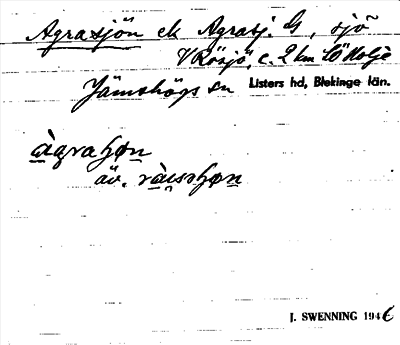 Agrasjön ek Agrasj. G, sjö
V Rösjö, c. 2 km SÖ Holje
Jämshögs sn Listers hd, Blekinge län.
àgraɧøn
äv. ràisɧøn
J. SWENNING 1946